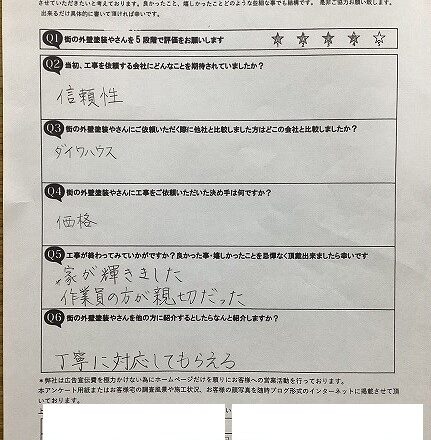 させていただきたいと考えております。良かったこと、嬉しかったことどのような些細な事でも結構です。 是非ご協力お願い致します。
出来るだけ具体的に書いて頂ければ幸いです。
Q1 街の外壁塗装やさんを5段階で評価をお願いします ★ ★ ★ ★ ☆
Q2 当初、工事を依頼する会社にどんなことを期待されていましたか？
信頼性
Q3 街の外壁塗装やさんにご依頼いただく際に他社と比較しました方はどこの会社と比較しましたか？
ダイワハウス
Q4 街の外壁塗装やさんに工事をご依頼いただいた決め手は何ですか？
価格
Q5 工事が終わってみていかがですか？良かった事・嬉しかったことを忌憚なく頂戴出来ましたら幸いです
家が輝きました
作業員の方が親切だった
Q6 街の外壁塗装やさんを他の方に紹介するとしたらなんと紹介しますか？
丁寧に対応してもらえる
＊弊社は広告宣伝費を極力かけない為にホームページだけを頼りにお客様への営業活動を行っております。
本アンケート用紙またはお客様宅の調査風景や施工状況、お客様の顔写真を随時ブログ形式のインターネットに掲載させて頂
いております。